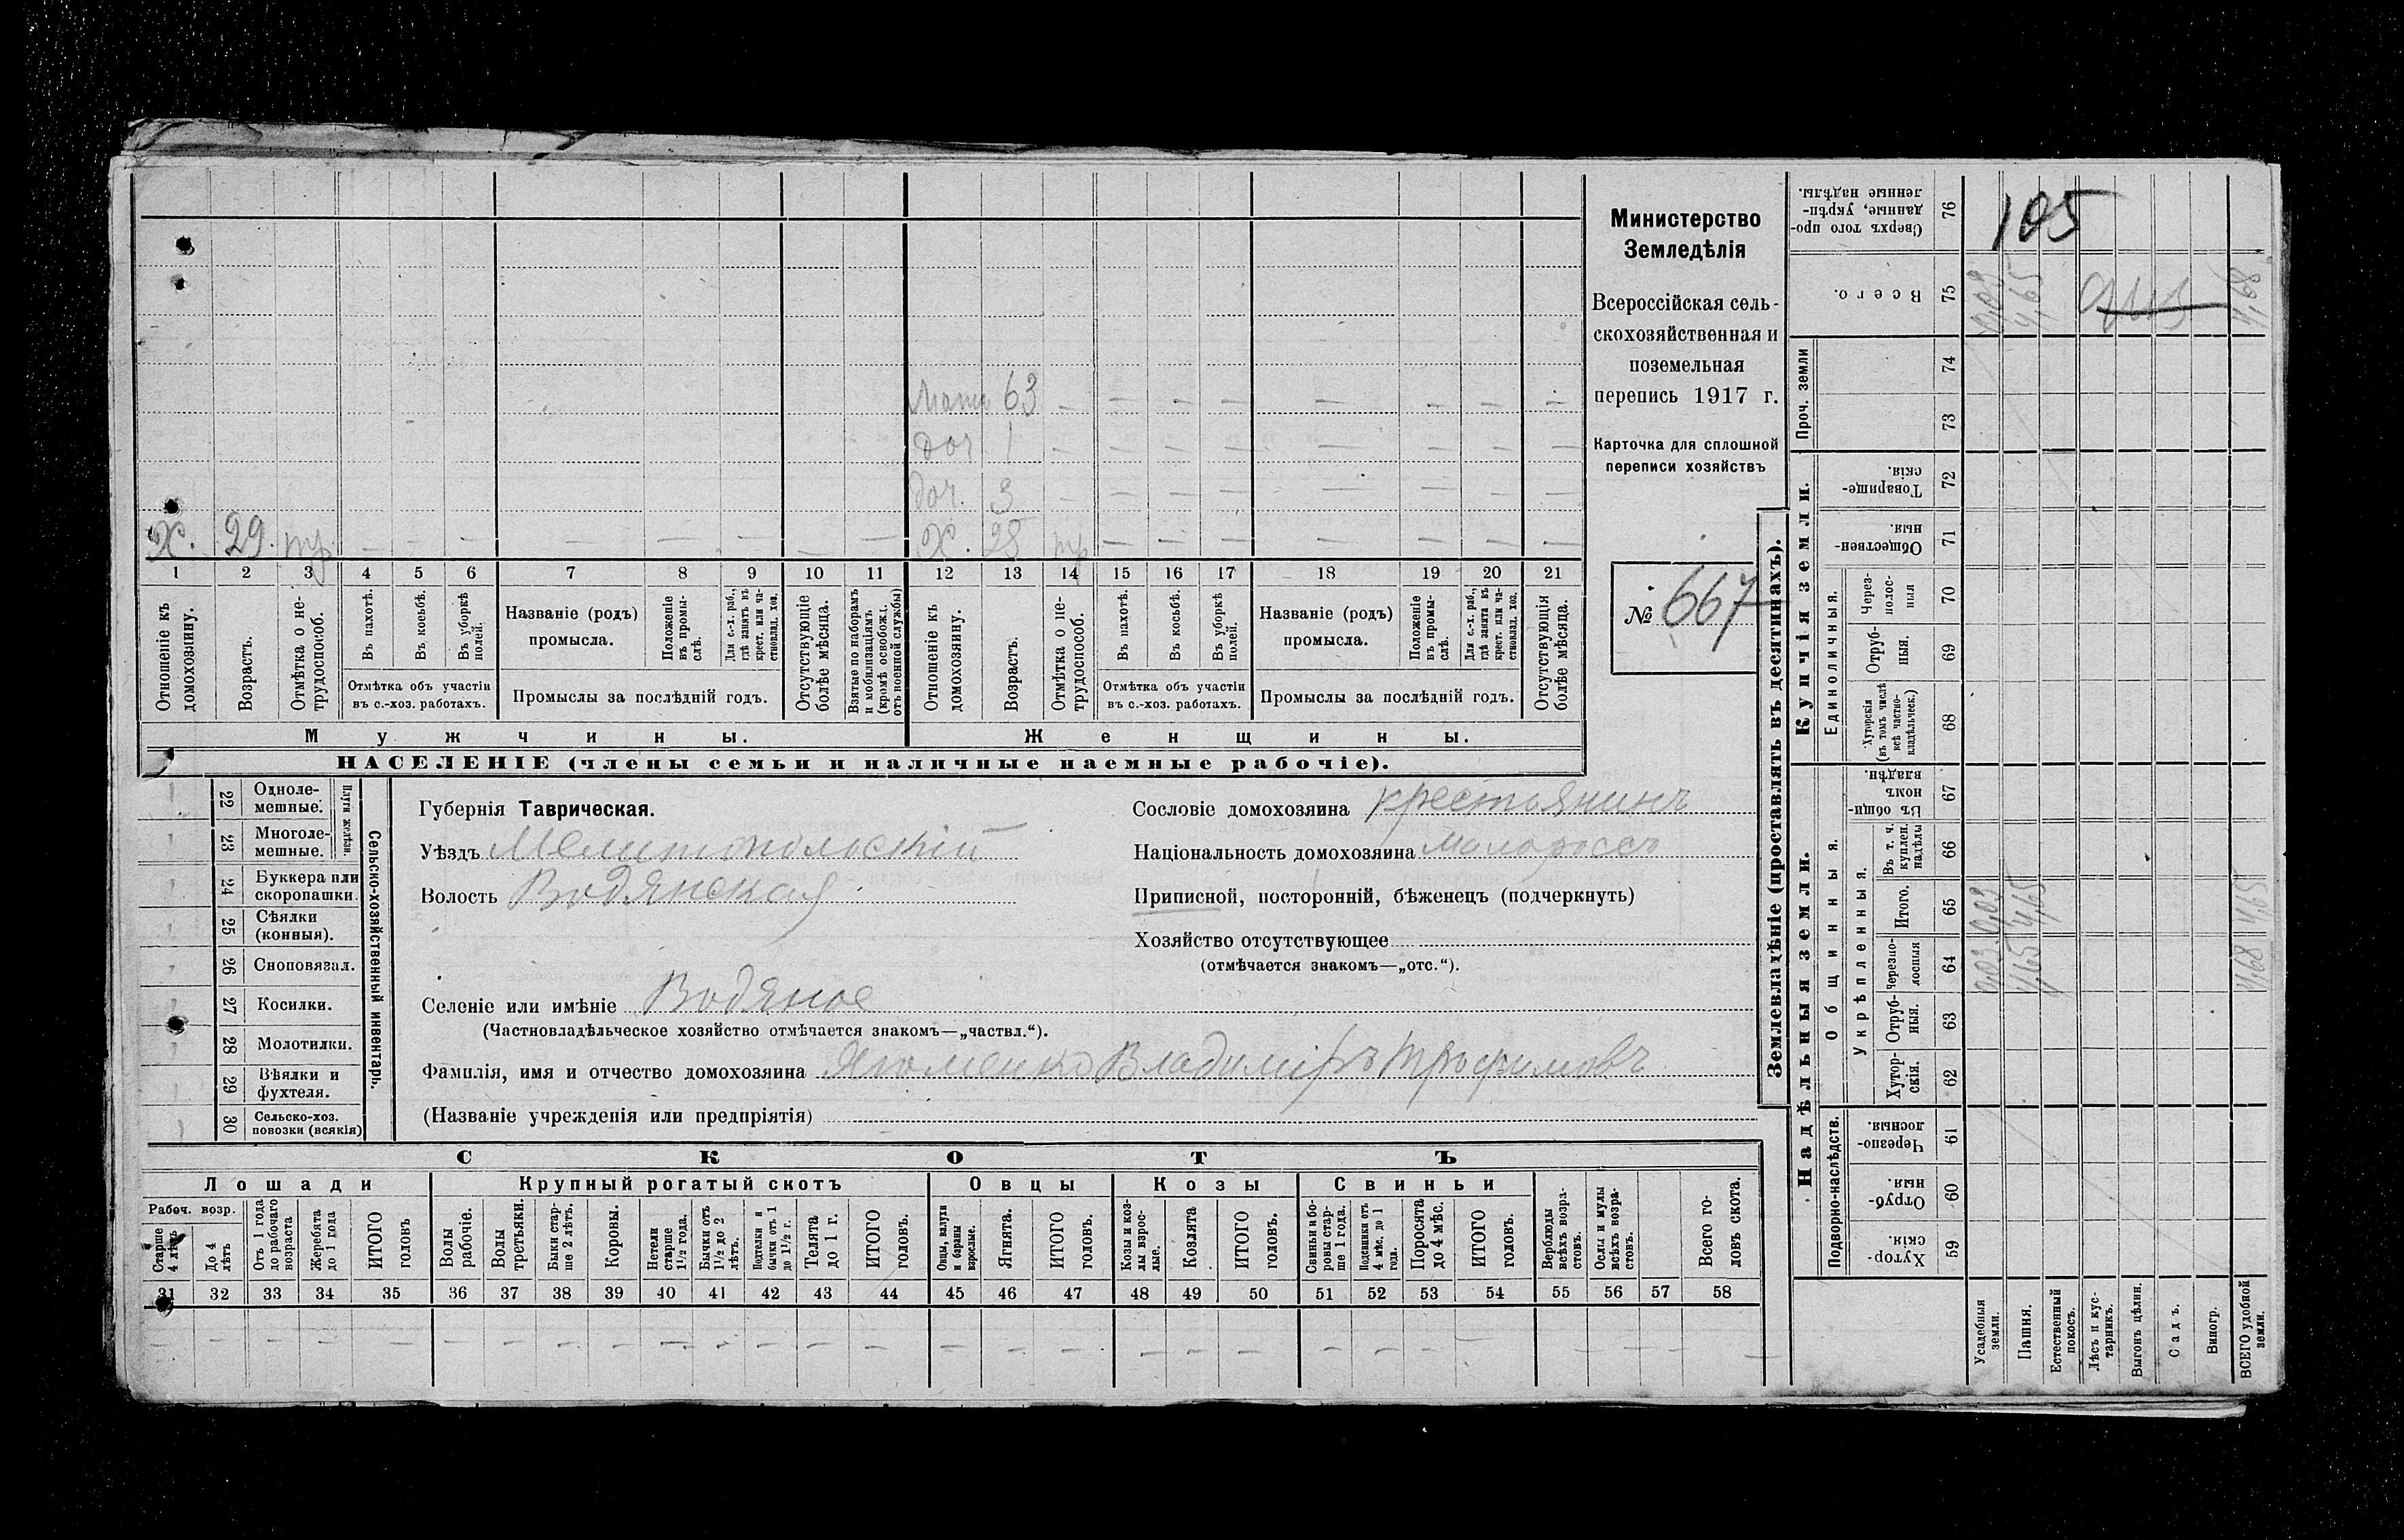 Мать 63 — — — — — — — —
доч. 1 — — — — — — — —
доч. 3 — — — — — — — —
Х. 29. тр. — — — — — — — — Х. 28 тр — — — — — — —
1 2 3 4 5 6 7 8 9 10 11 12 13 14 15 16 17 18 19 20 21
Отношеніе къ домохозяину.
Возрастъ.
Отмѣтка о нетрудоспособ.
Въ пахотѣ.
Въ косьбѣ.
Въ уборкѣ полей.
Отмѣтка объ участіи
въ с.-хоз. работахъ.
Названіе (родъ)
промысла.
Положеніе въ промыслѣ.
Для с.-х. раб., гдѣ занятъ въ крест. или частновлад. хоз.
Промыслы за послѣдній годъ.
Отсутствующіе болѣе мѣсяца.
Взятые по наборамъ и мобилизаціямъ (кромѣ освобожд. отъ военной службы)
Отношеніе къ домохозяину.
Возрастъ.
Отмѣтка о нетрудоспособ.
Въ пахотѣ.
Въ косьбѣ.
Въ уборкѣ полей.
Отмѣтка объ участіи
въ с.-хоз. работахъ.
Названіе (родъ)
промысла.
Положеніе въ промыслѣ.
Для с.-х. раб., гдѣ занята въ крест. или частновлад. хоз.
Промыслы за послѣдній годъ.
Отсутствующія болѣе мѣсяца.
Мужчины. Женщины.
НАСЕЛЕНІЕ (члены семьи и наличные наемные рабочіе).
Министерство
Земледѣлія
Всероссійская сель-
скохозяйственная и
поземельная
перепись 1917 г.
Карточка для сплошной
переписи хозяйствъ
№ 667
22 Однолемешные.
23 Многолемешные.
Плуги желѣзн.
24 Буккера или скоропашки.
25 Сѣялки (конныя).
26 Сноповязал.
27 Косилки.
28 Молотилки.
29 Вѣялки и фухтеля.
30 Сельско-хоз. повозки (всякія)
Сельско-хозяйственный инвентарь.
Губернія Таврическая.
Уѣздъ Мелитопольскій
Волость Водянская
Селеніе или имѣніе Водяное
(Частновладѣльческое хозяйство отмѣчается знакомъ—„частвл.“).
Фамилія, имя и отчество домохозяина Владиміръ Трофимовъ
(Названіе учрежденія или предпріятія)
Сословіе домохозяина крестьянинъ
Національность домохозяина малороссъ
Приписной, посторонній, бѣженецъ (подчеркнуть)
Хозяйство отсутствующее
(отмѣчается знакомъ—„отс.“).
СКОТЪ
Лошади Крупный рогатый скотъ Овцы Козы Свиньи
Рабоч. возр.
Старше 4 лѣтъ
До 4 лѣтъ
Отъ 1 года до рабочаго возраста
Жеребята до 1 года
ИТОГО головъ
Волы рабочіе.
Волы третьяки.
Быки старше 2 лѣтъ.
Коровы.
Нетели старше 1½ года.
Бычки отъ 1½ до 2 лѣтъ.
Подтелки и бычки отъ 1 до 1½ г.
Телята до 1 г.
ИТОГО головъ.
Овцы, валухи и бараны взрослые.
Ягнята.
ИТОГО головъ.
Козы и козлы взрослые.
Козлята
ИТОГО головъ.
Свиньи и боровы старше 1 года.
Подсвинки отъ 4 мѣс. до 1 года.
Поросята до 4 мѣс.
ИТОГО головъ.
Верблюды всѣхъ возрастовъ.
Ослы и мулы всѣхъ возрастовъ.
Всего головъ скота.
31 32 33 34 35 36 37 38 39 40 41 42 43 44 45 46 47 48 49 50 51 52 53 54 55 56 57 58
Землевладѣніе (проставлять въ десятинахъ).
Надѣльныя земли. Купчія земли. Проч. земли
Подворно-наслѣдств.
Общинныя.
Укрѣпленныя.
Единоличныя.
Сверхъ того проданные, укрѣпленные надѣлы. 76
105
Всего. 75 0,03 4,65 4,68
74
73
Товарищескія. 72
Общественныя. 71
Черезполосныя 70
Отрубныя. 69
Хуторскія (въ томъ числѣ всѣ частновладѣльческ.) 68
Въ общинномъ владѣн. 67
Въ т. ч. куплен. надѣлы 66
Итого. 65 0,03 4,65 4,65
Черезполосныя 64 0,03 4,65 4,68
Отрубныя. 63
Хуторскія. 62
Черезполосныя. 61
Отрубныя. 60
Хуторскія. 59
Усадебныя земли.
Пашня.
Естественный покосъ.
Лѣсъ и кустарникъ.
Выгонъ цѣлин.
Садъ.
Виногр.
ВСЕГО удобной земли.